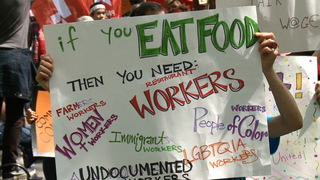 if you EAT FOOD
THEN YOU NEED:
RESTAURANT
WORKERS
FARM
WORKERS
WOMEN
WORKERS
Immigrant
WORKERS
People of Color
WORKERS
LGBTQIA
WORKERS
UNDOCUMENTED
WORKERS
FAIR
United